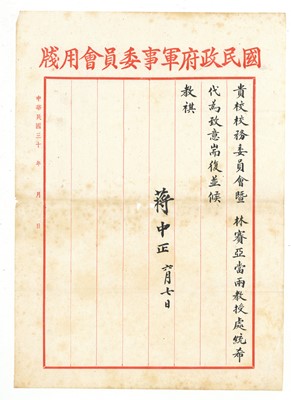 國民政府軍事委員會用牋
貴校校務委員會暨 林賽亞當兩教授處統希
代為致意耑復並候
教祺
蔣中正 六月七日
中華民國三十 年 月 日